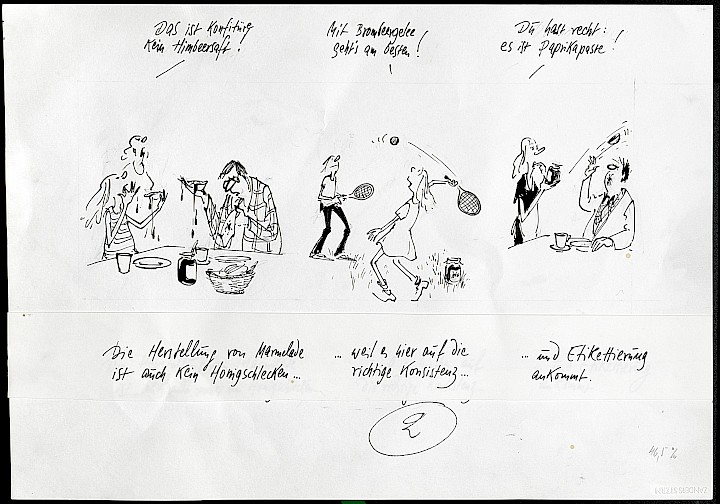 Das ist Konfitüre
kein Himbeersaft!
Mit Brombeergelee
geht's am besten!
Du hast recht:
es ist Paprikapaste!
Die Herstellung von Marmelade
ist auch kein Honigschlecken...
... weil es hier auf die
richtige Konsistenz...
... und Etikettierung
ankommt.
2